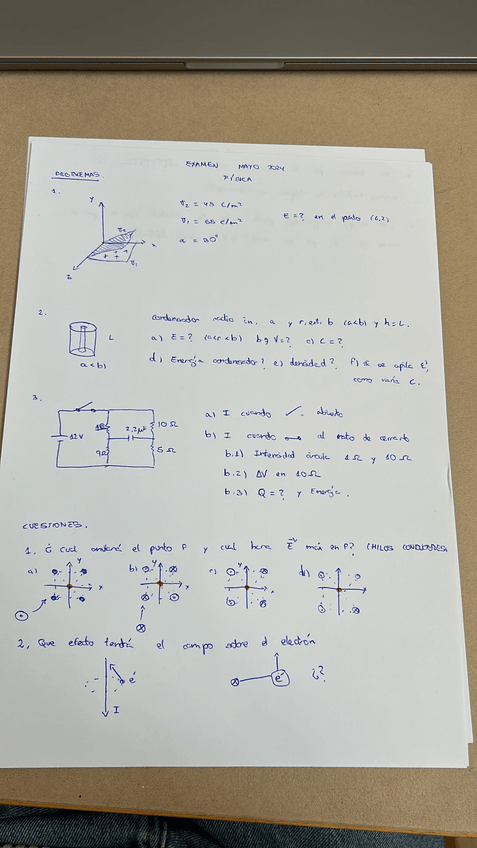 EXAMEN MAYO 2024
FÍSICA
PROBLEMAS
1.
σ₂ = 45 C/m²
σ₁ = 65 C/m²
α = 30°
E = ? en el punto (6,2)
y
x
z
σ₂
σ₁
+ + +
2.
condensador radio in. a y r. ext. b (a<b) y h=L.
a) E=? (a<r<b) b) V=? c) C=?
d) Energía condensador? e) densidad? f) si se aplica E,
como varía C.
L
a<b)
3.
12V
1Ω
9Ω
2,2μF
10Ω
5Ω
a) I cuando abierto
b) I cuando al rato de cerrarlo
b.1) Intensidad circula 1Ω y 10Ω
b.2) ΔV en 10Ω
b.3) Q=? y Energía.
CUESTIONES.
1. ¿ cual el punto P y cual E en P? (HILOS CONDUCTORES)
a) b) c) d)
y x
2, Que efecto tendrá el campo sobre el electrón
e⁻
I
e⁻
¿?